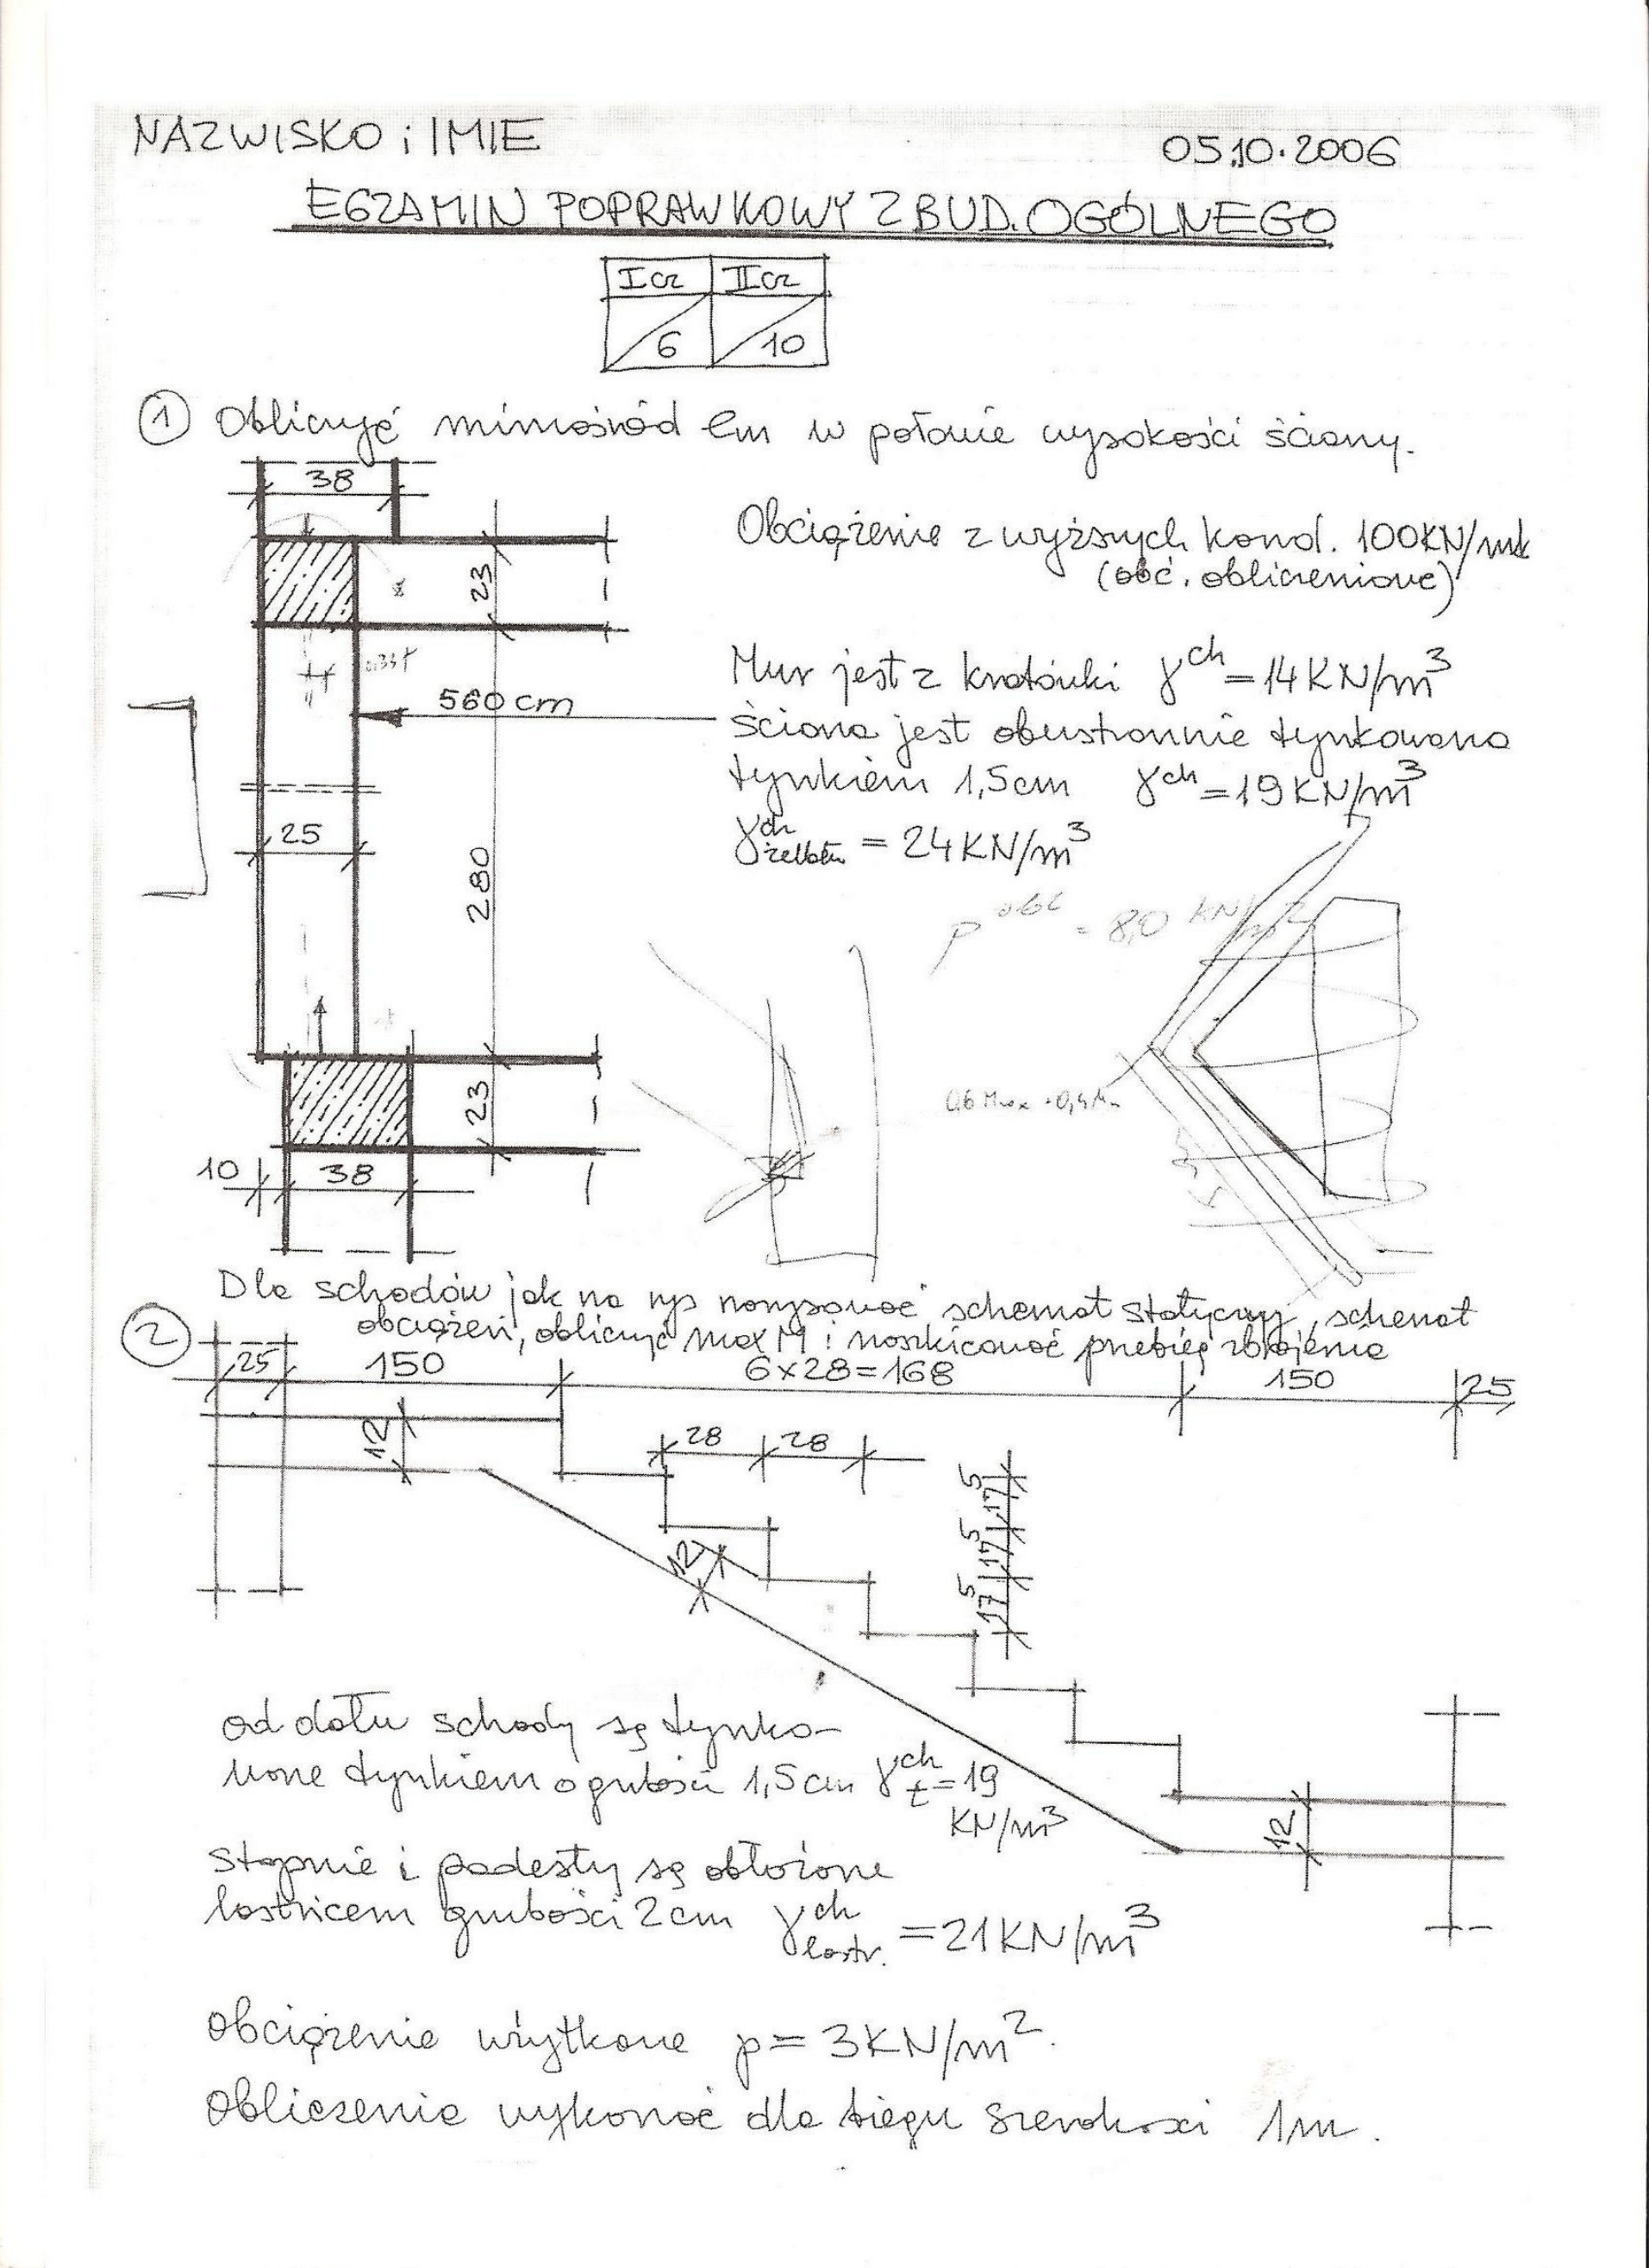 NAZWISKO i IMIE
05.10.2006
EGZAMIN POPRAWKOWY Z BUD. OGÓLNEGO
I cz II cz
6 10
1 Obliczyć mimośród em w połowie wysokości ściany.
38
Obciążenie z wyższych kond. 100KN/mb
(obc. obliczeniowe)
23
Mur jest z kratówki γ ch = 14KN/m3
560 cm
Ściana jest obustronnie tynkowana
tynkiem 1,5cm γ ch = 19KN/m3
25
γ ch żelbetu = 24KN/m3
280
p obl = 8,0 KN/m2
23
10 38
Dla schodów jak na rys narysować schemat statyczny, schemat
2 obciążeń, obliczyć max M i naszkicować przebieg zbrojenia
25 150 6x28=168 150 25
12
28 28
17 5 17 5 17 5
12
od dołu schody są tynko-
wane tynkiem o grubości 1,5cm γ ch t = 19
KN/m3
12
Stopnie i podesty są obłożone
lastricem grubości 2cm γ ch lastr. = 21KN/m3
Obciążenie użytkowe p = 3KN/m2.
Obliczenia wykonać dla biegu szerokości 1m.